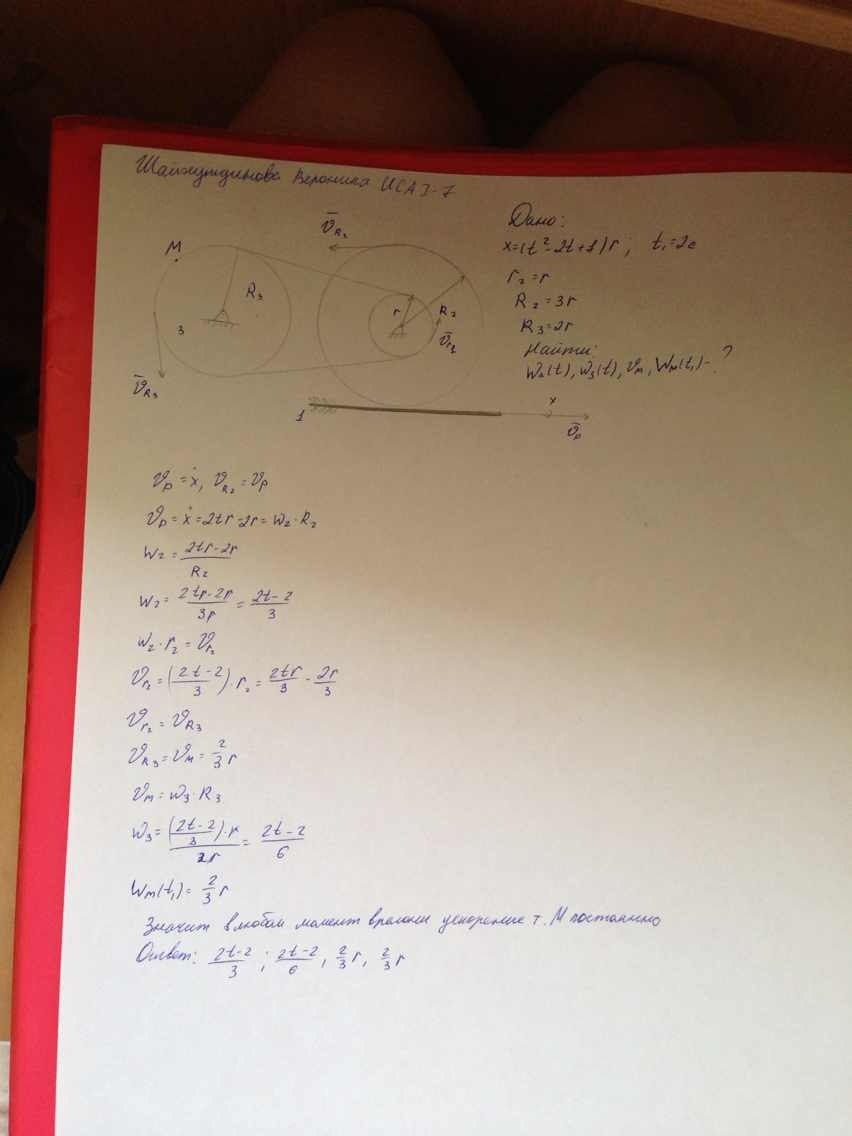 Шайхутдинова Вероника ИСАI-7
Дано:
x=(t²-2t+1)r; t₁=2c
r₂=r
R₂=3r
R₃=2r
Найти:
W₂(t), W₃(t), υм, Wм(t₁)-?
M
R₃
3
ῡR₃
ῡR₂
r
R₂
ῡr₂
1
x
ῡp
υp=ẋ, υR₂=υp
υp=ẋ=2tr-2r=W₂·R₂
W₂=(2tr-2r)/R₂
W₂=(2tr-2r)/3r=(2t-2)/3
W₂·r₂=υr₂
υr₂=((2t-2)/3)·r₂=2tr/3-2r/3
υr₂=υR₃
υR₃=υм=2/3 r
υм=W₃·R₃
W₃=((2t-2)/3)·r/2r=(2t-2)/6
Wм(t₁)=2/3 r
Значит в любой момент времени ускорение т. М постоянно
Ответ: (2t-2)/3; (2t-2)/6, 2/3 r, 2/3 r